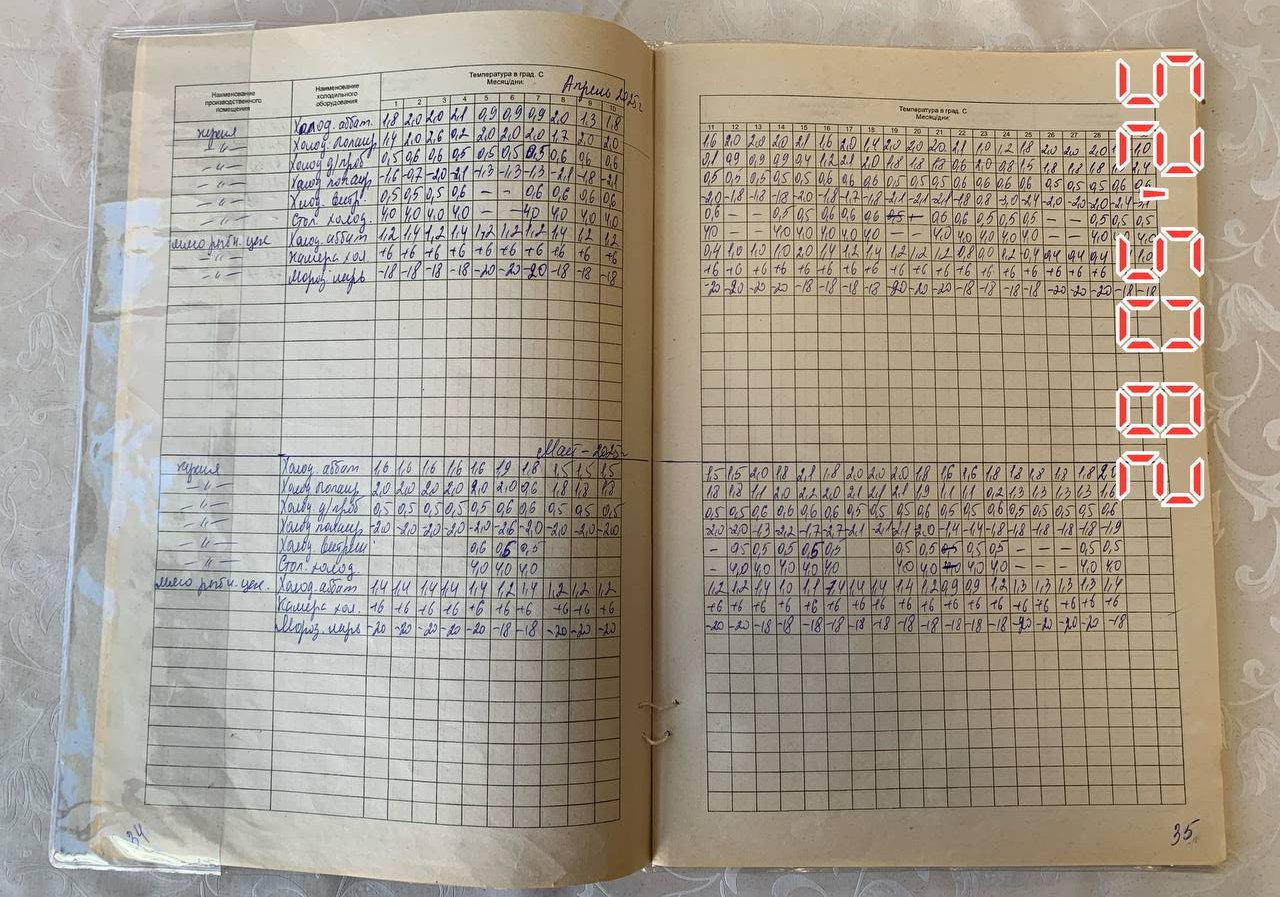 Наименование производственного помещения
Наименование холодильного оборудования
Температура в град. С
Месяц/дни:
Апрель 2025г
1 2 3 4 5 6 7 8 9 10
кухня Холод. аббат. 1,8 2,0 2,0 2,1 0,9 0,9 0,9 2,0 1,3 1,8
-"- Холод. попаир 1,4 2,0 2,6 0,2 2,0 2,0 2,0 1,7 2,0 2,0
-"- Холод д/проб 0,5 0,6 0,6 0,5 0,5 0,5 0,5 0,6 0,6 0,6
-"- Холод попаир -1,6 -0,7 -2,0 -2,1 -1,3 -1,3 -1,3 -2,1 -1,8 -2,1
-"- Холод. 0,5 0,5 0,5 0,6 - - 0,6 0,6 0,6 0,6
-"- Стол. холод. 4,0 4,0 4,0 4,0 - - 4,0 4,0 4,0 4,0
мясо рыбн. цех Холод. аббат 1,2 1,4 1,2 1,4 1,2 1,2 1,2 1,4 1,2 1,2
-"- Камера хол +6 +6 +6 +6 +6 +6 +6 +6 +6 +6
-"- Мороз. ларь -18 -18 -18 -18 -20 -20 -20 -18 -18 -18
Май - 2025г
кухня Холод. аббат 1,6 1,6 1,6 1,6 1,6 1,9 1,8 1,5 1,5 1,5
-"- Холод попаир 2,0 2,0 2,0 2,0 2,0 2,0 0,6 1,8 1,8 1,8
-"- Холод д/проб 0,5 0,5 0,5 0,5 0,5 0,6 0,6 0,5 0,5 0,5
-"- Холод попаир -2,0 -2,0 -2,0 -2,0 -2,0 -2,6 -2,0 -2,0 -2,0 -2,0
-"- Холод 0,6 0,5 0,5
-"- Стол. холод 4,0 4,0 4,0
мясо рыбн. цех. Холод. аббат 1,4 1,4 1,4 1,4 1,4 1,2 1,4 1,2 1,2 1,2
Камера хол. +6 +6 +6 +6 +6 +6 +6 +6 +6 +6
Мороз. ларь -20 -20 -20 -20 -20 -18 -18 -20 -20 -20
34
Температура в град. С
Месяц/дни:
11 12 13 14 15 16 17 18 19 20 21 22 23 24 25 26 27 28
1,6 2,0 2,0 2,0 2,1 1,6 2,0 1,4 2,0 2,0 2,0 2,1 1,0 1,2 1,8 2,0 2,0 2,0
0,5 0,5 0,5 0,5 0,5 0,6 0,6 0,6 0,5 0,5 0,5 0,6 0,6 0,6 0,6 0,5 0,5 0,5 0,6 0,6
0,6 - - 0,5 0,5 0,6 0,6 0,6 - 0,6 0,6 0,5 0,5 0,5 - - 0,5 0,5 0,5
4,0 - - 4,0 4,0 4,0 4,0 4,0 - - 4,0 4,0 4,0 4,0 4,0 - - 4,0 4,0
+6 +6 +6 +6 +6 +6 +6 +6 +6 +6 +6 +6 +6 +6 +6 +6 +6 +6
-20 -20 -20 -20 -18 -18 -18 -18 -20 -20 -20 -18 -18 -18 -18 -20 -20 -20 -18 -18
1,5 1,5 2,0 1,8 2,1 1,8 2,0 2,0 2,0 1,8 1,6 1,6 1,8 1,8 1,8 1,8 1,8 2,0
1,8 1,8 1,1 2,0 2,2 2,0 2,1 2,1 2,1 1,9 1,1 1,1 0,2 1,3 1,3 1,3 1,3 1,6
0,5 0,5 0,6 0,5 0,6 0,6 0,5 0,5 0,5 0,5 0,6 0,6 0,6 0,5 0,5 0,5 0,5 0,6
-2,0 -2,0 -1,3 -2,2 -1,7 -2,7 -2,1 -2,1 -2,1 -2,0 -1,4 -1,4 -1,8 -1,8 -1,8 -1,8 -1,8 -1,9
- 0,5 0,5 0,5 0,5 0,5 0,5 0,5 0,5 0,5 0,5 - - - 0,5 0,5
- 4,0 4,0 4,0 4,0 4,0 4,0 4,0 4,0 4,0 4,0 - - - 4,0 4,0
1,2 1,2 1,4 1,0 1,8 1,4 1,4 1,4 1,4 1,2 0,9 0,9 1,2 1,3 1,3 1,3 1,3 1,4
+6 +6 +6 +6 +6 +6 +6 +6 +6 +6 +6 +6 +6 +6 +6 +6 +6 +6
-20 -20 -18 -18 -18 -18 -18 -18 -18 -18 -18 -18 -18 -20 -20 -20 -20 -18
35
28.05.'25